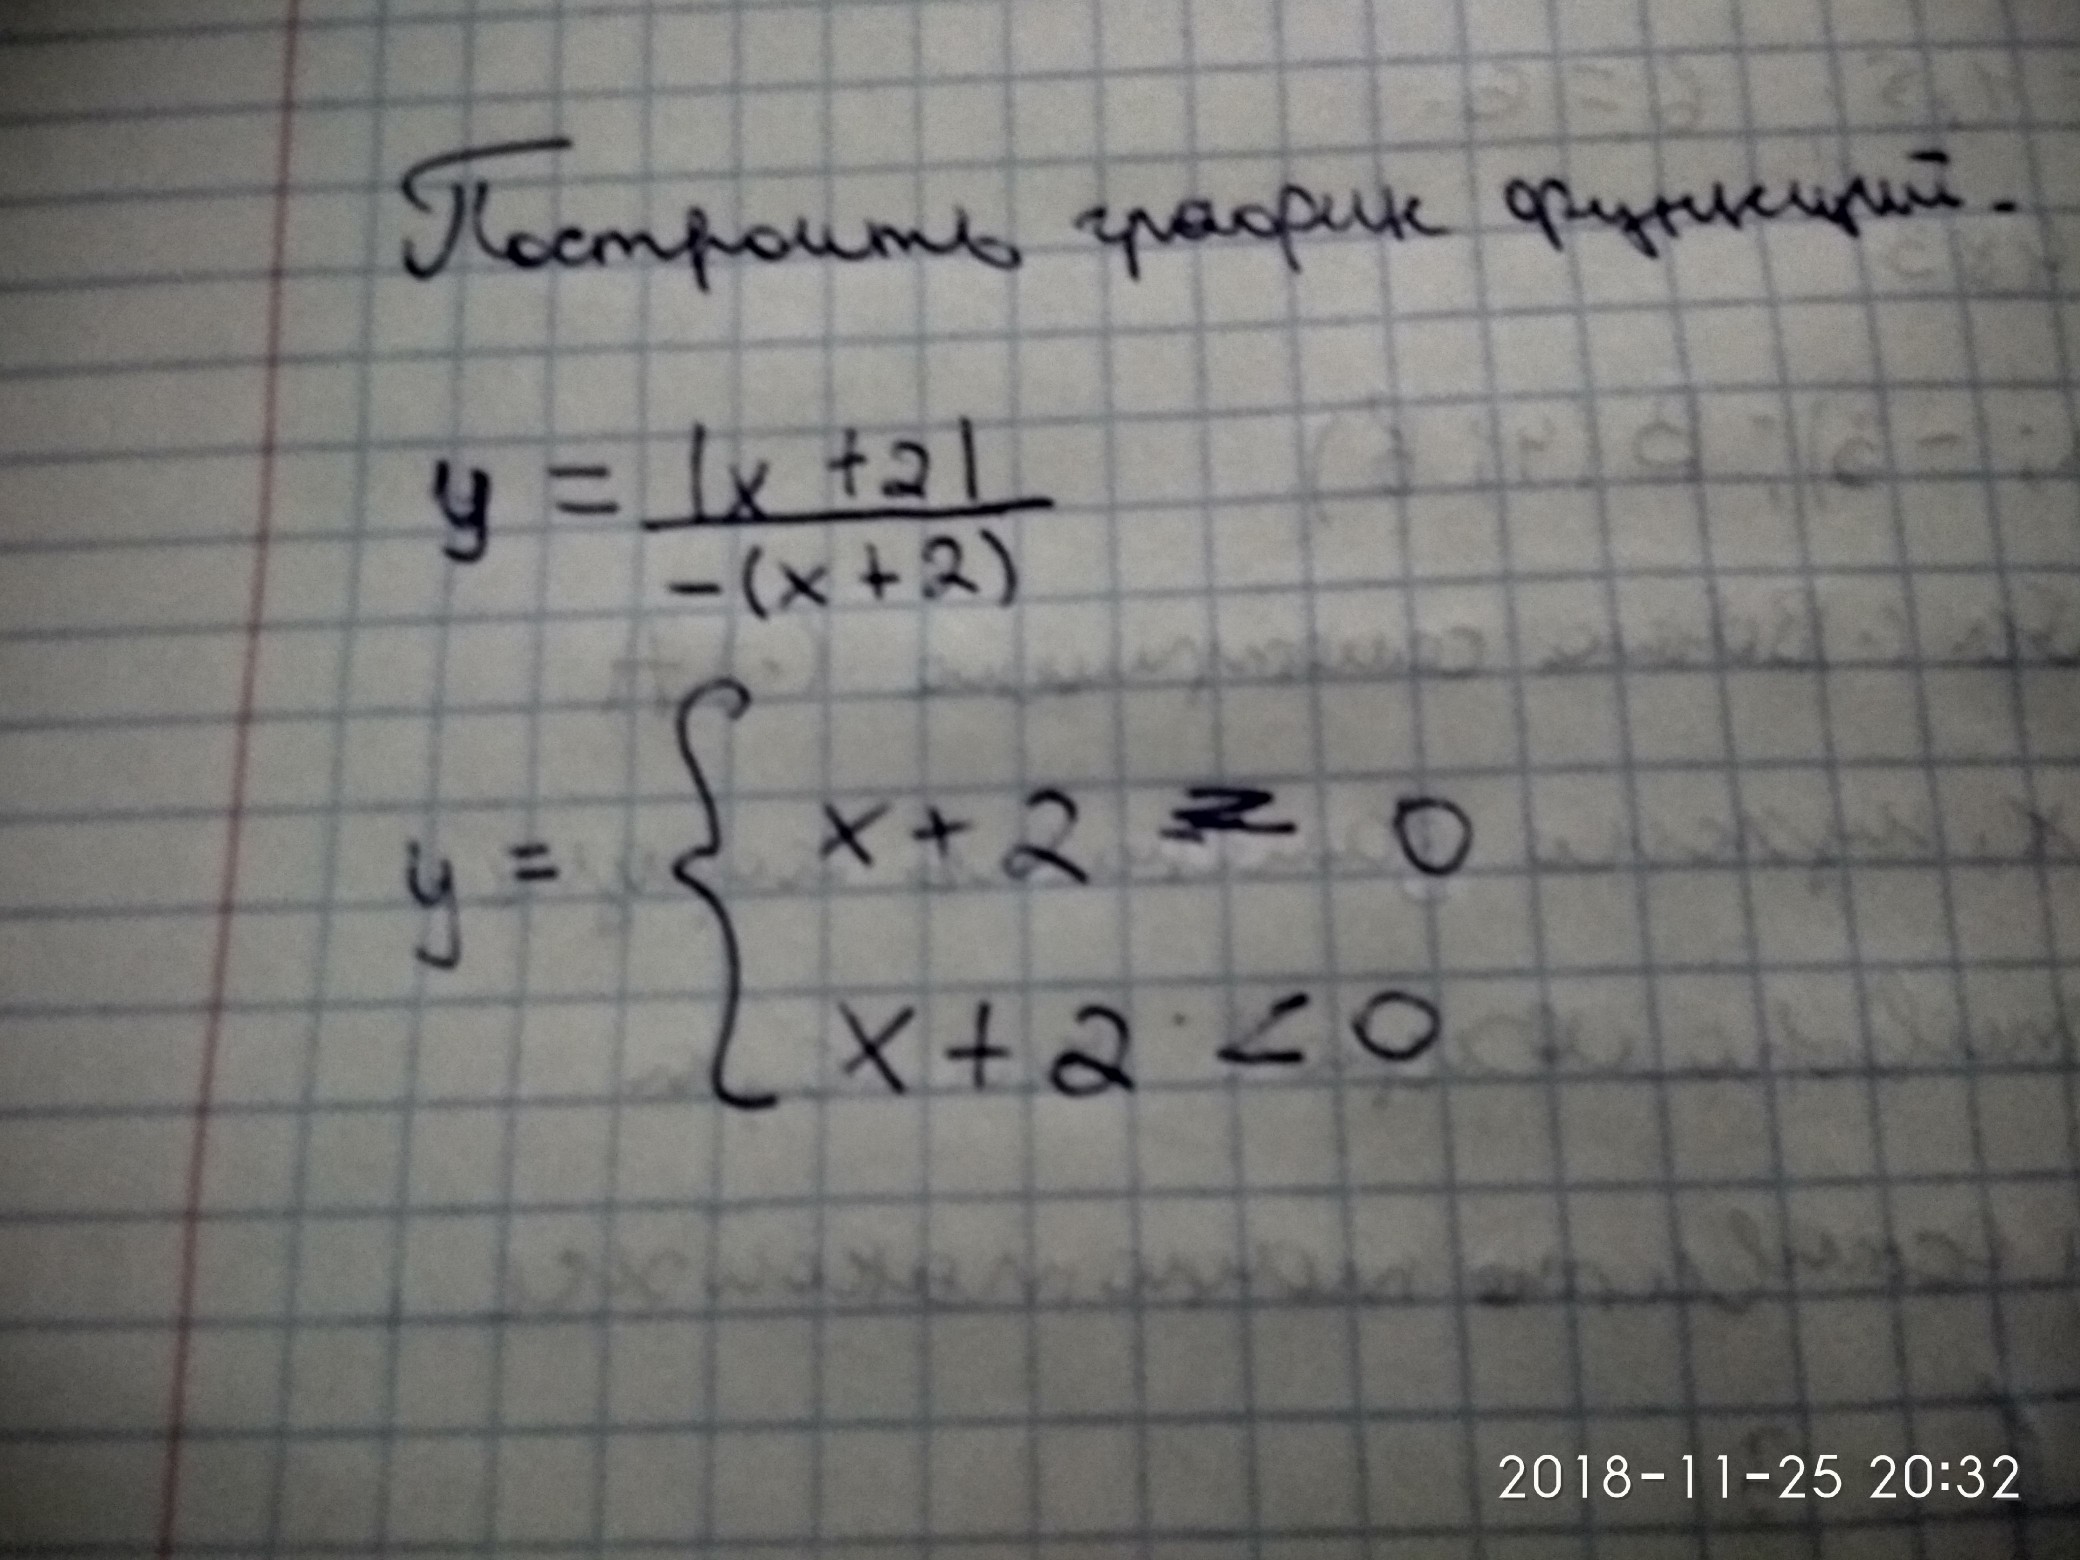 Построить график функций.
y = |x +2|
-(x+2)
y = { x+2 ≥ 0
x+2 < 0
2018-11-25 20:32